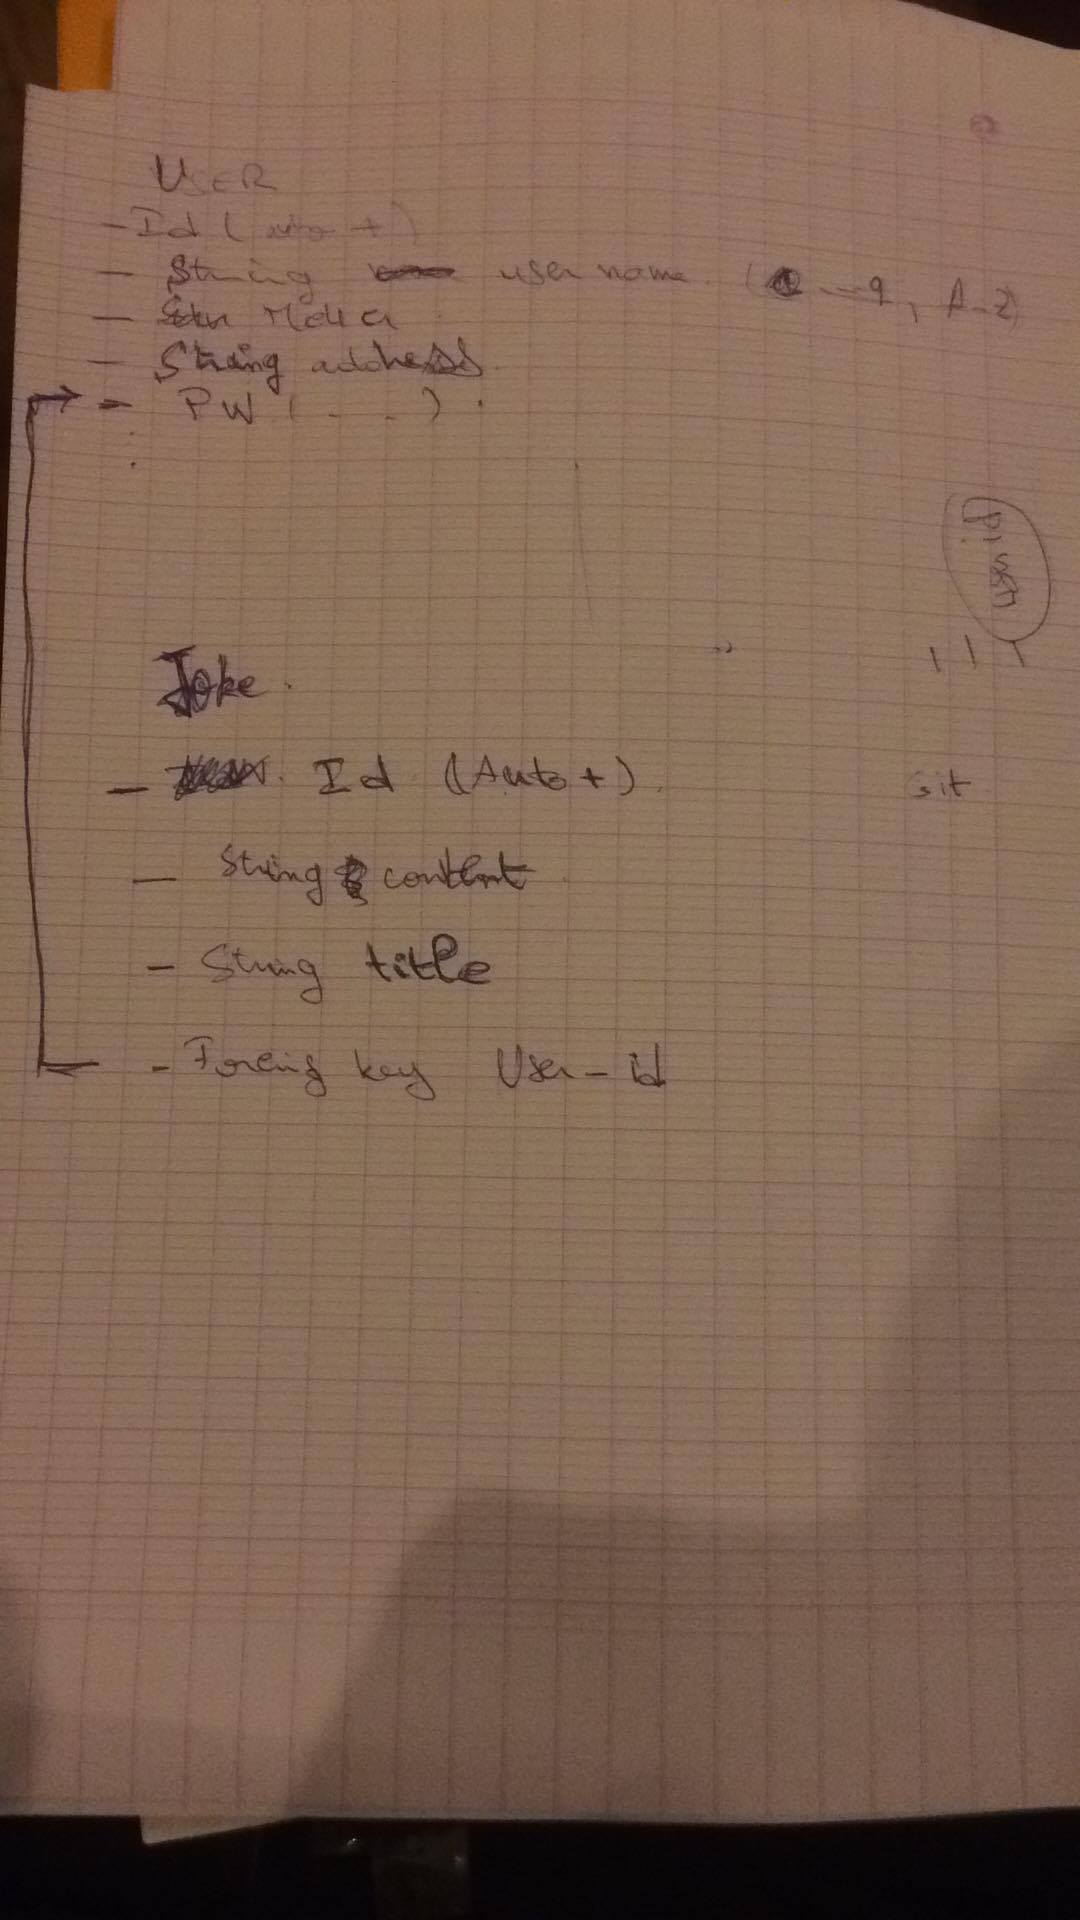 USER
- Id (auto +)
- String username (0 - 9, A-Z)
-
- String address
- PW ( . . ) .
Joke.
- Id (Auto +).
git
- String content
- String title
- Foreing key User-id